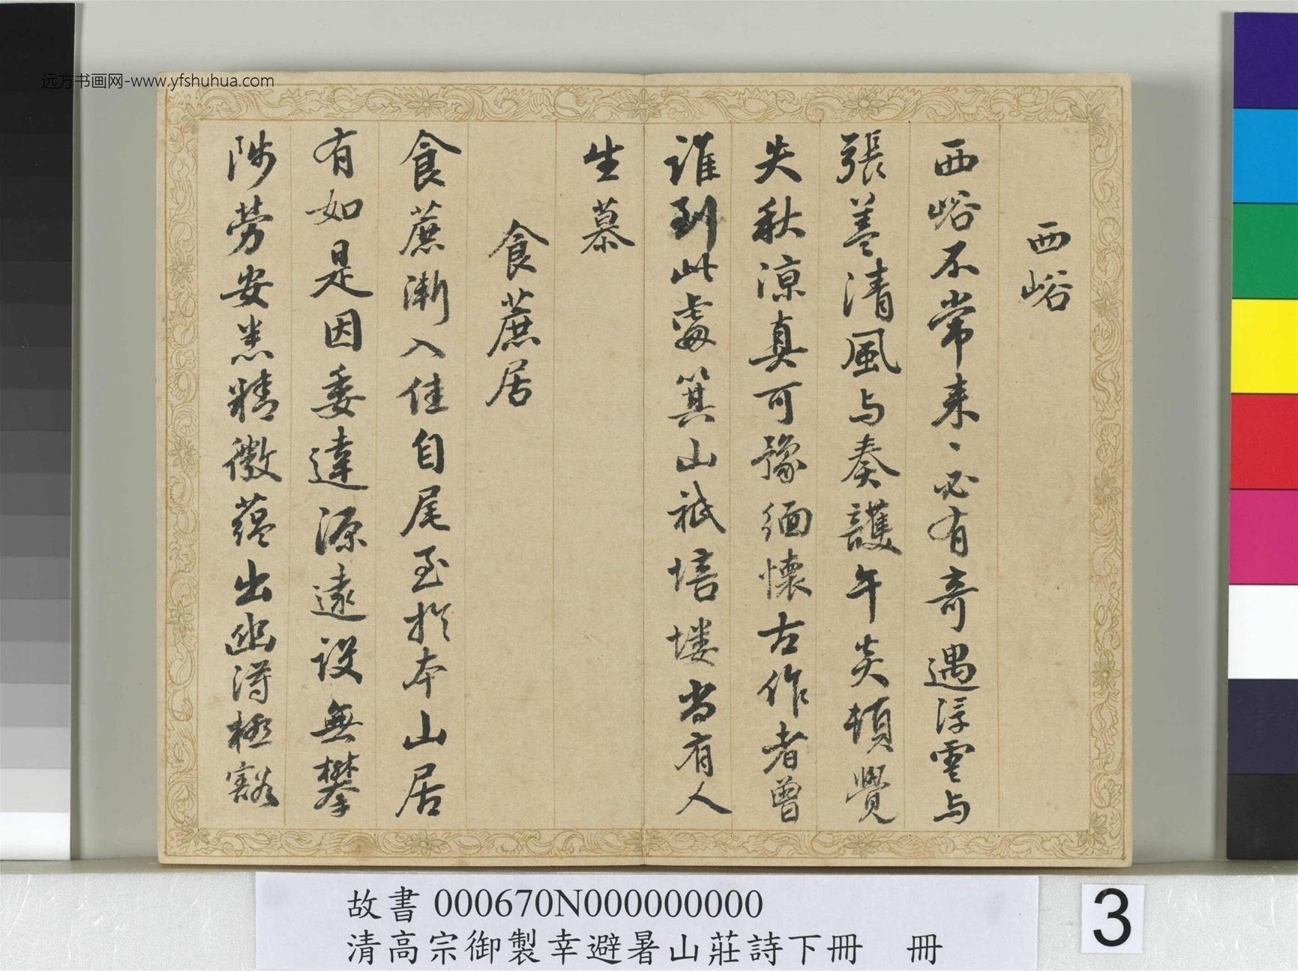 远方书画网-www.yfshuhua.com
西峪
西峪不常来〻必有奇遇浮雲与
張盖清風与奏護午炎頓覺
失秋涼真可豫緬懷古作者曽
誰到此處箕山祇培塿当有人
生慕
食蔗居
食蔗漸入佳自尾至於本山居
有如是因委達源遠設無攀
陟勞安悉精微蘊出幽得極豁
故書 000670N000000000
清高宗御製幸避暑山莊詩下冊 冊
3